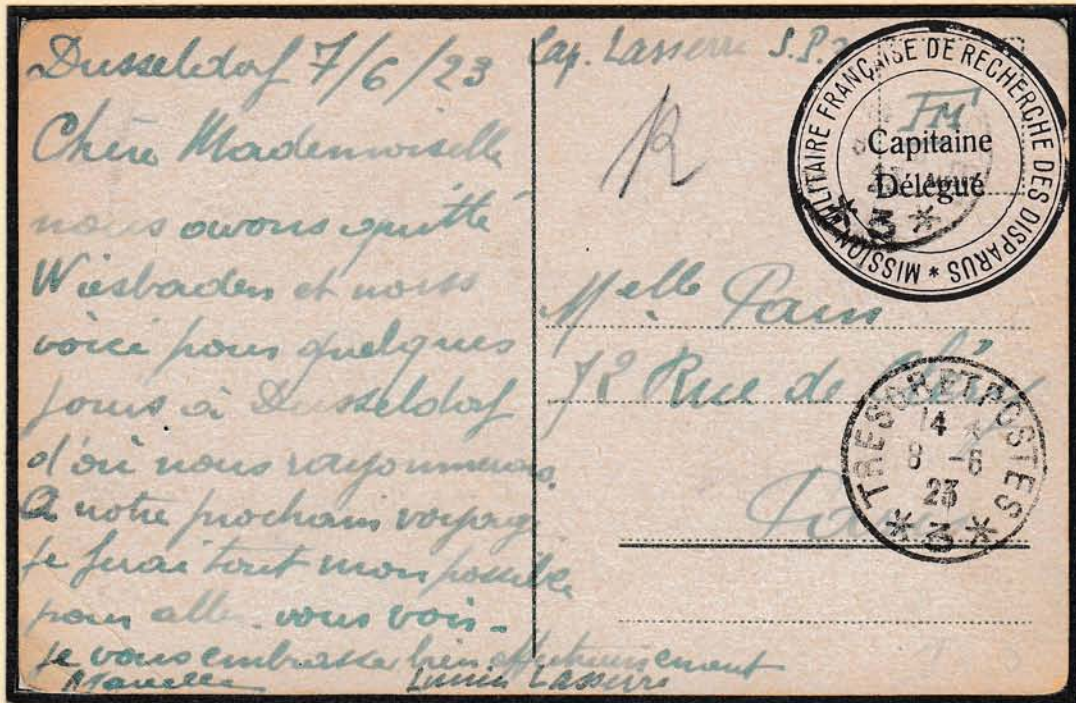 Dusseldorf 7/6/23
Chère Mademoiselle
nous avons quitté
Wiesbaden et nous
voici pour quelques
jours à Dusseldorf
d'où nous rayonnerons.
A notre prochain voyage
je ferai tout mon possible
pour aller vous voir.
je vous embrasse bien affectueusement
Lucien Lasserre
Cap. Lasserre S.P.
FM
MISSION MILITAIRE FRANÇAISE DE RECHERCHE DES DISPARUS *
Capitaine
Délégué
* 3 *
Melle Pain
72 Rue de Cléry
Paris
TRESOR ET POSTES
14
8 -6
23
* 3 *